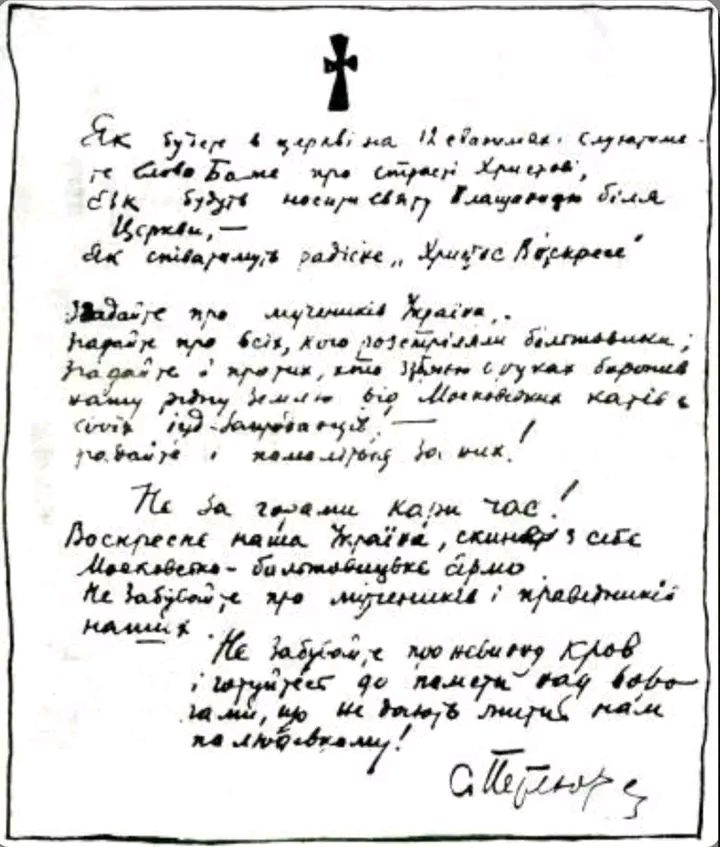 Як будете в церкві на 12 євангиліях слухатиме-
те Слово Боже про страсті Христові,
Як будуть носити святу Плащаницю біля
Церкви, —
Як співатимуть радісне „Христос Воскресе"
Згадайте про мучеників України,
Згадайте про всіх, кого розстріляли більшовики;
Згадайте й про тих, хто зі зброєю в руках боронив
нашу рідну землю від Московських катів і
своїх іуд-запроданців, —
Згадайте і помоліться за них!
Не за горами кари час!
Воскресне наша Україна, скине з себе
Московсько-більшовицьке ярмо
Не забувайте про мучеників і праведників
наших.
Не забувайте про невинну кров
і готуйтесь до помсти над воро-
гами, що не дають жити нам
по людському!
С. Петлюра